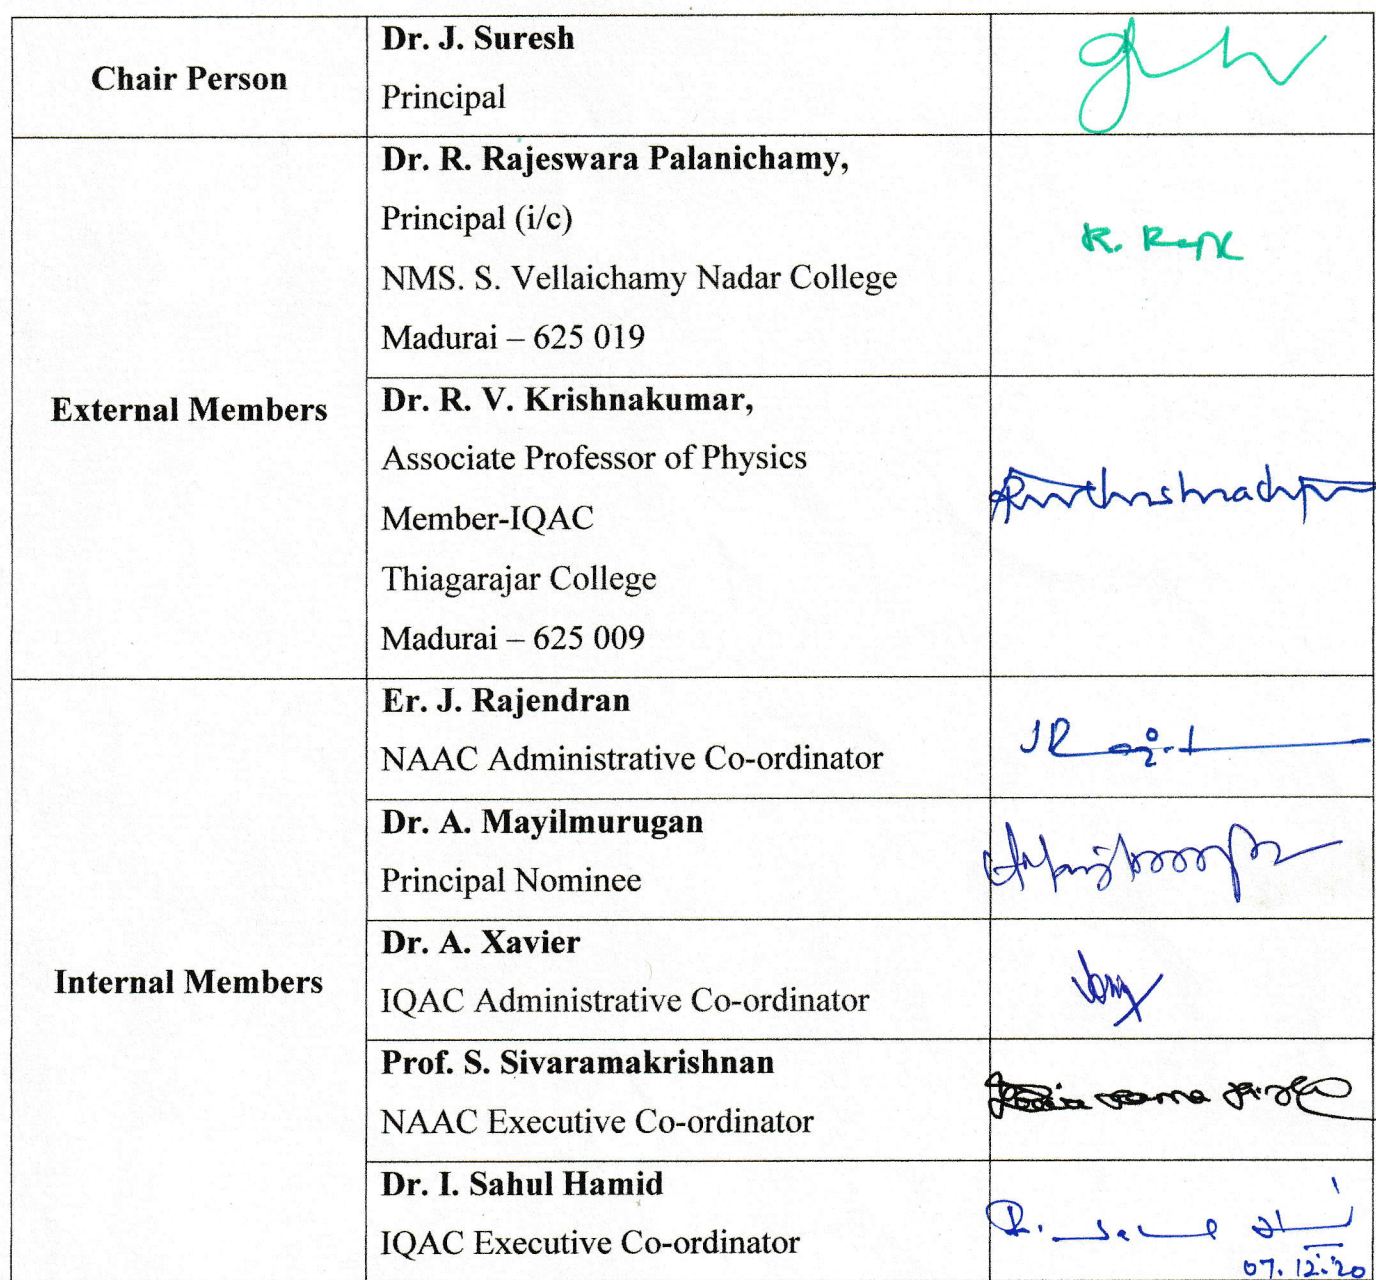 Chair Person
Dr. J. Suresh
Principal
External Members
Dr. R. Rajeswara Palanichamy,
Principal (i/c)
NMS. S. Vellaichamy Nadar College
Madurai – 625 019
Dr. R. V. Krishnakumar,
Associate Professor of Physics
Member-IQAC
Thiagarajar College
Madurai – 625 009
Internal Members
Er. J. Rajendran
NAAC Administrative Co-ordinator
Dr. A. Mayilmurugan
Principal Nominee
Dr. A. Xavier
IQAC Administrative Co-ordinator
Prof. S. Sivaramakrishnan
NAAC Executive Co-ordinator
Dr. I. Sahul Hamid
IQAC Executive Co-ordinator
07.12.20